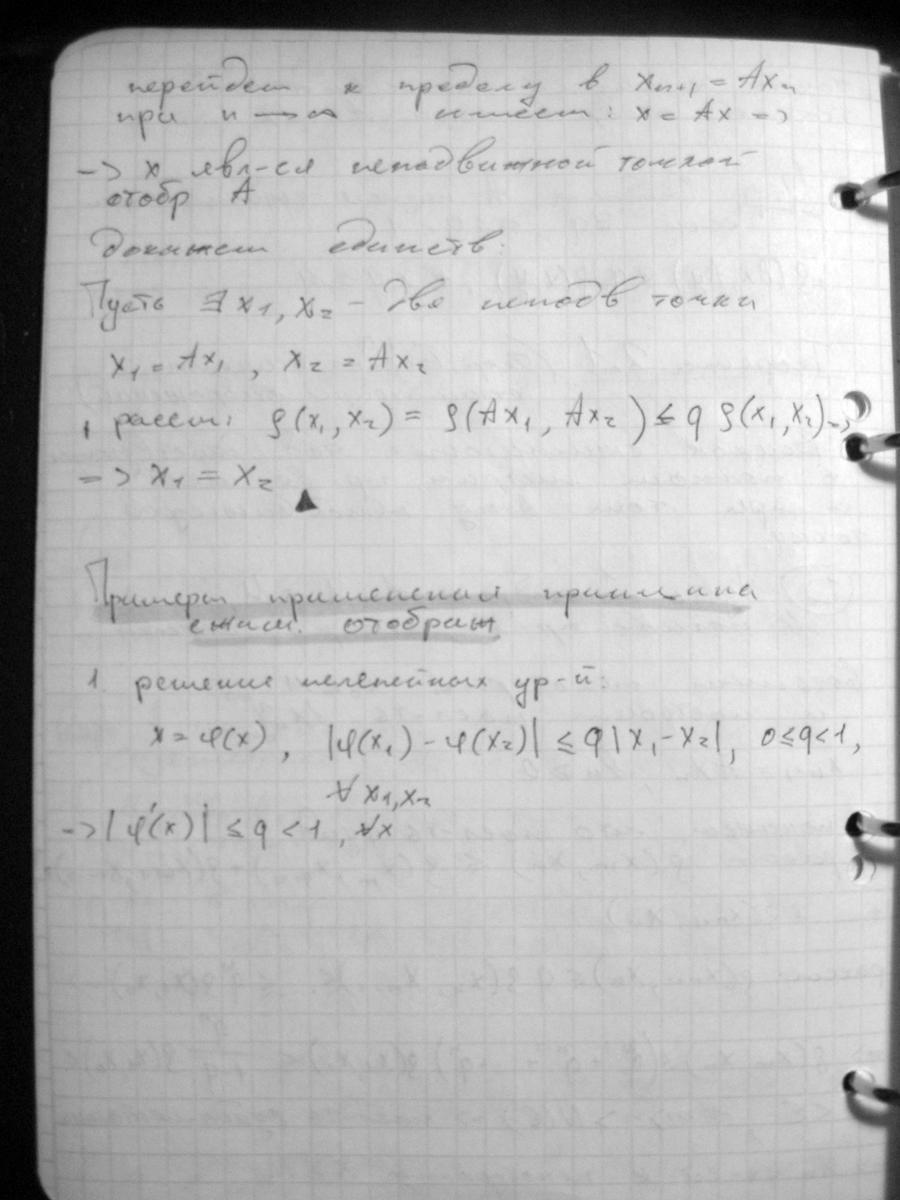 перейдем к пределу в xₙ₊₁ = Axₙ
при n → ∞ имеем: x = Ax =>
=> x явл-ся неподвижной точкой
отобр A
докажем единств:
Пусть ∃ x₁, x₂ - две неподв точки
x₁ = Ax₁, x₂ = Ax₂
, рассм: ρ(x₁, x₂) = ρ(Ax₁, Ax₂) ≤ q ρ(x₁, x₂) =>
=> x₁ = x₂ ▲
Примеры применения принципа
сжим. отображ
1. решение нелинейных ур-й:
x = φ(x), |φ(x₁) - φ(x₂)| ≤ q |x₁ - x₂|, 0 ≤ q < 1,
∀ x₁, x₂
=> |φ'(x)| ≤ q < 1, ∀x